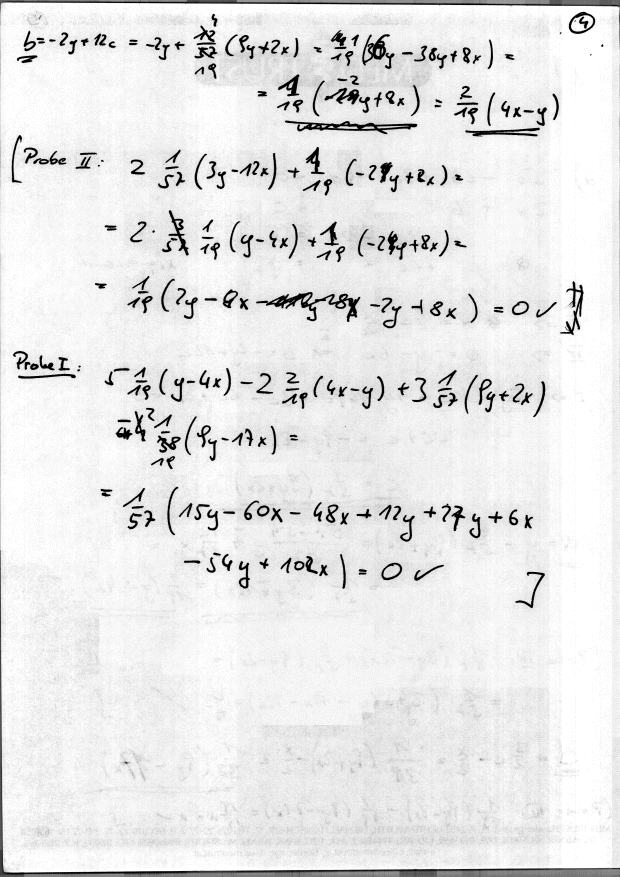 ④
b = -2y + 12c = -2y + 12/57 (9y + 2x) = 1/19 (36y - 38y + 8x) =
= 1/19 (-2y + 8x) = 2/19 (4x - y)
[Probe II: 2 1/57 (3y - 12x) + 1/19 (-2y + 8x) =
= 2 · 3/57 1/19 (y - 4x) + 1/19 (-2y + 8x) =
= 1/19 (2y - 8x - 2y + 8x) = 0 ✓ ]
Probe I: 5 1/19 (y - 4x) - 2 2/19 (4x - y) + 3 1/57 (9y + 2x)
- 4 2 1/38 19 (9y - 17x) =
= 1/57 (15y - 60x - 48x + 12y + 27y + 6x
- 54y + 102x) = 0 ✓ ]